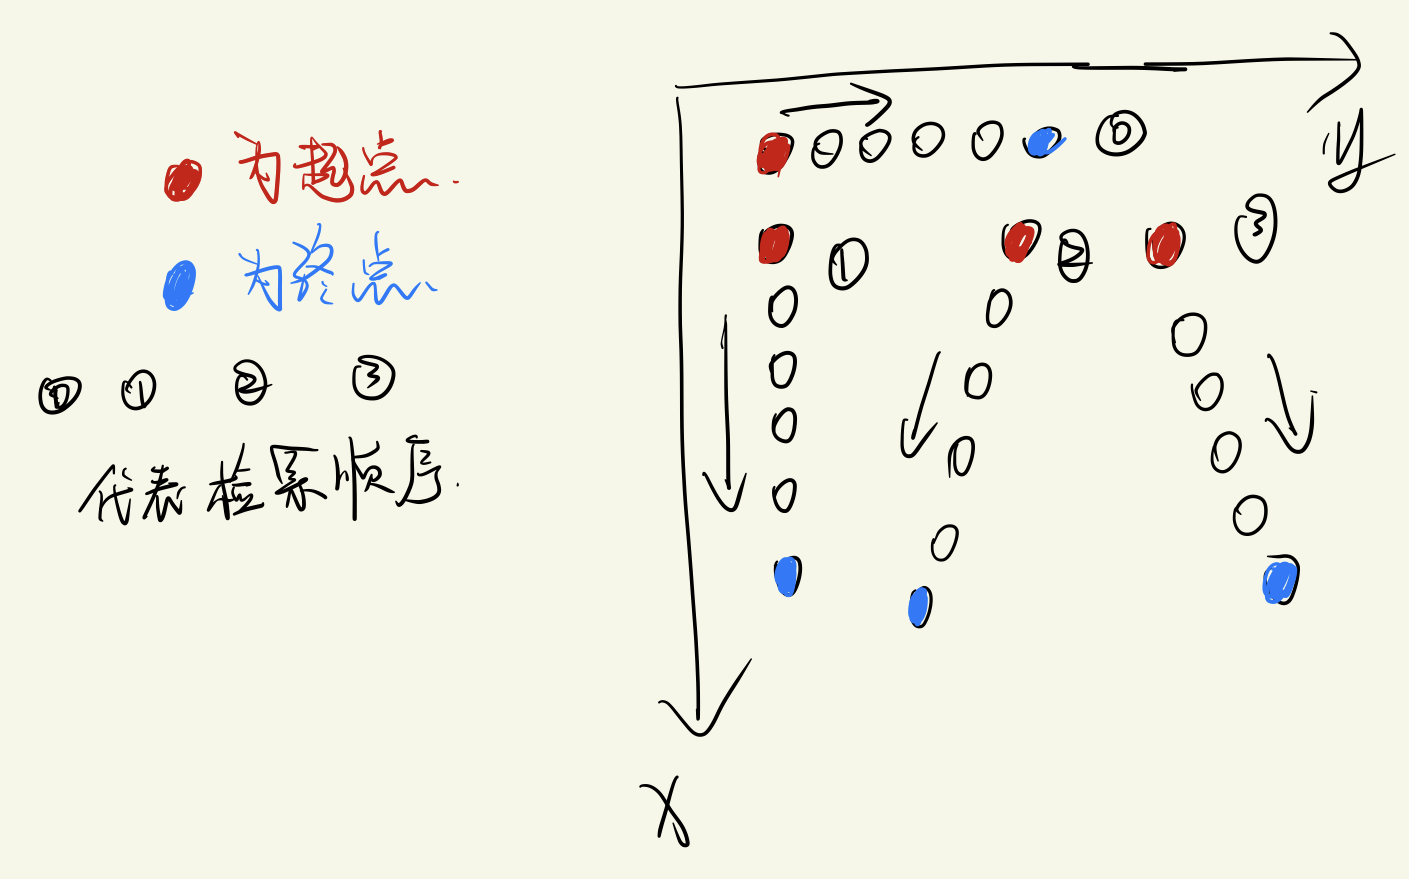 为起点.
为终点.
⓪ ① ② ③
代表检索顺序.
⓪
y
① ② ③
x